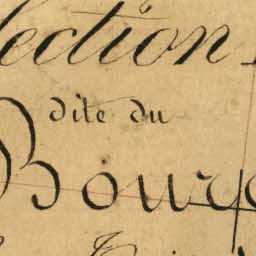 Section
dite du
Bourg